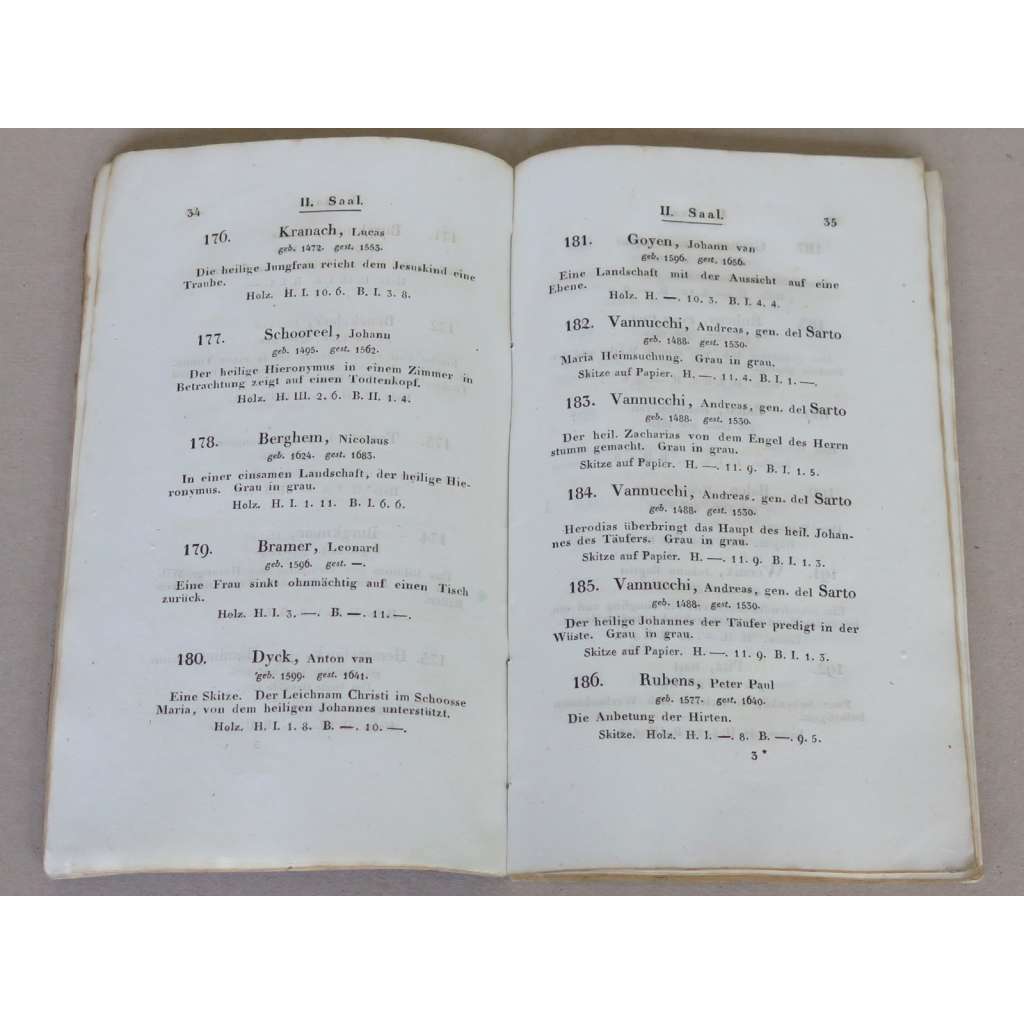 34
II. Saal.
176. Kranach, Lucas
geb. 1472. gest. 1553.
Die heilige Jungfrau reicht dem Jesuskind eine
Traube.
Holz. H. I. 10. 6. B. I. 3. 8.
177. Schooreel, Johann
geb. 1495. gest. 1562.
Der heilige Hieronymus in einem Zimmer in
Betrachtung zeigt auf einen Todtenkopf.
Holz. H. III. 2. 6. B. II. 1. 4.
178. Berghem, Nicolaus
geb. 1624. gest. 1683.
In einer einsamen Landschaft, der heilige Hie-
ronymus. Grau in grau.
Holz. H. I. 1. 11. B. I. 6. 6.
179. Bramer, Leonard
geb. 1596. gest. —.
Eine Frau sinkt ohnmächtig auf einen Tisch
zurück.
Holz. H. I. 3. —. B. —. 11. —.
180. Dyck, Anton van
geb. 1599. gest. 1641.
Eine Skitze. Der Leichnam Christi im Schoosse
Maria, von dem heiligen Johannes unterstützt.
Holz. H. I. 1. 8. B. —. 10. —.
II. Saal.
35
181. Goyen, Johann van
geb. 1596. gest. 1656.
Eine Landschaft mit der Aussicht auf eine
Ebene.
Holz. H. —. 10. 3. B. I. 4. 4.
182. Vannucchi, Andreas, gen. del Sarto
geb. 1488. gest. 1530.
Maria Heimsuchung. Grau in grau.
Skitze auf Papier. H. —. 11. 4. B. I. 1. —.
183. Vannucchi, Andreas, gen. del Sarto
geb. 1488. gest. 1530.
Der heil. Zacharias von dem Engel des Herrn
stumm gemacht. Grau in grau.
Skitze auf Papier. H. —. 11. 9. B. I. 1. 5.
184. Vannucchi, Andreas. gen. del Sarto
geb. 1488. gest. 1530.
Herodias überbringt das Haupt des heil. Johan-
nes des Täufers. Grau in grau.
Skitze auf Papier. H. —. 11. 9. B. I. 1. 3.
185. Vannucchi, Andreas, gen. del Sarto
geb. 1488. gest. 1530.
Der heilige Johannes der Täufer predigt in der
Wüste. Grau in grau.
Skitze auf Papier. H. —. 11. 9. B. I. 1. 3.
186. Rubens, Peter Paul
geb. 1577. gest. 1640.
Die Anbetung der Hirten.
Skitze. Holz. H. I. —. 8. B. —. 9. 5.
3 *